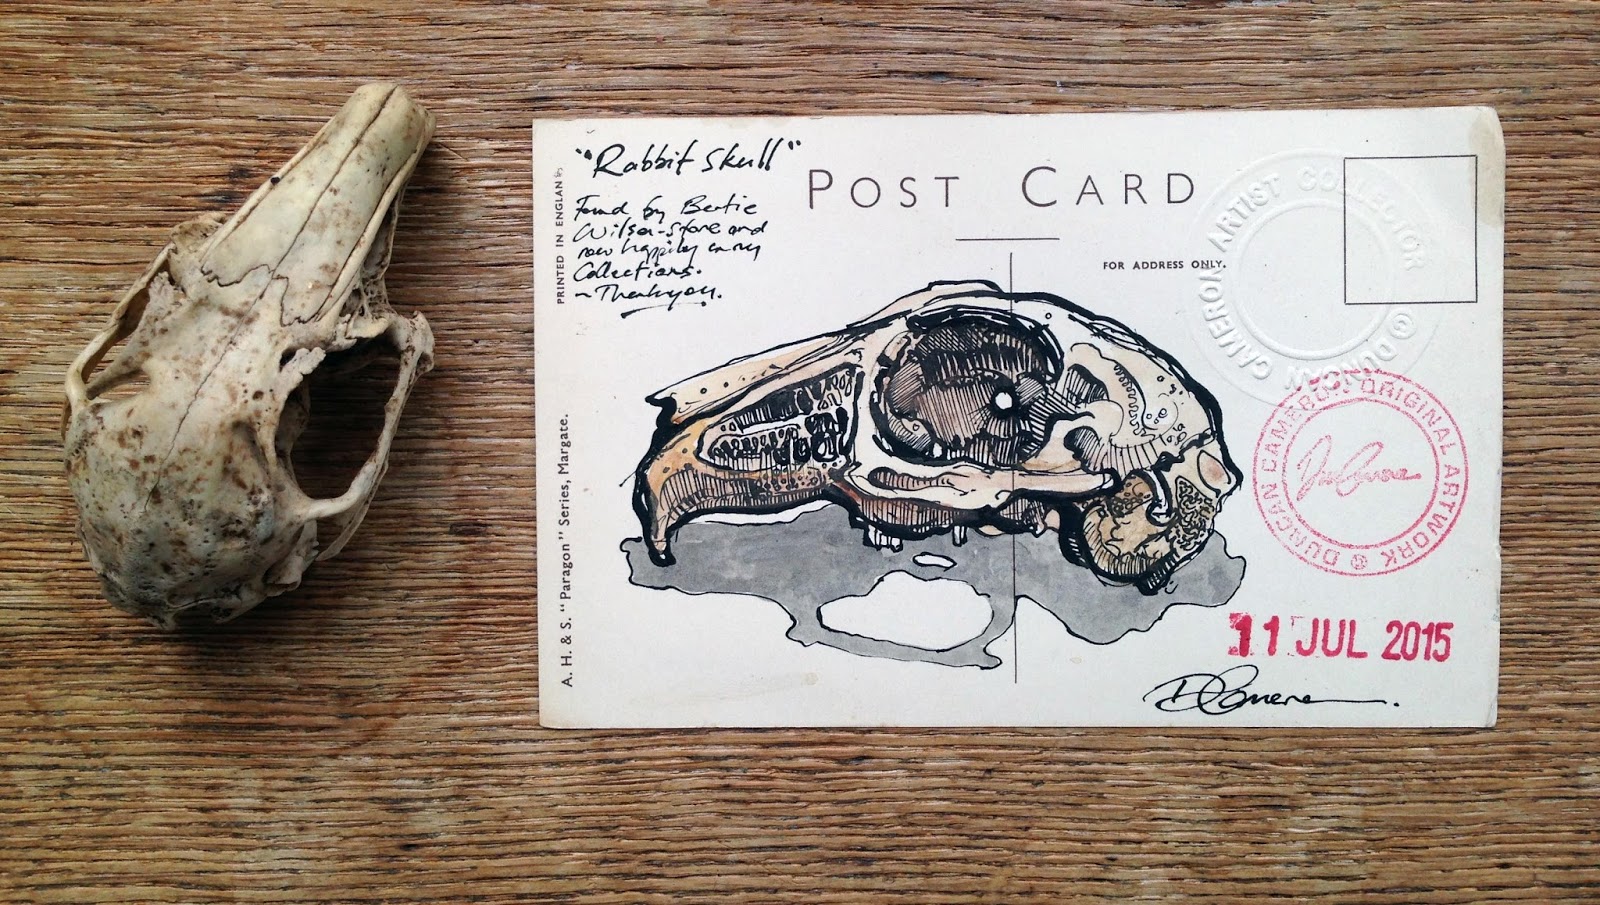 "Rabbit Skull"
Found by Bertie
Wilson-Stone and
now happily in my
Collections.
~ Thankyou.
PRINTED IN ENGLAN
A. H. & S. "Paragon" Series, Margate.
POST CARD
FOR ADDRESS ONLY.
CAMERON ARTIST COLLECTOR © DUNCAN
DUNCAN CAMERON ORIGINAL ARTWORK ©
11 JUL 2015
DCameron.